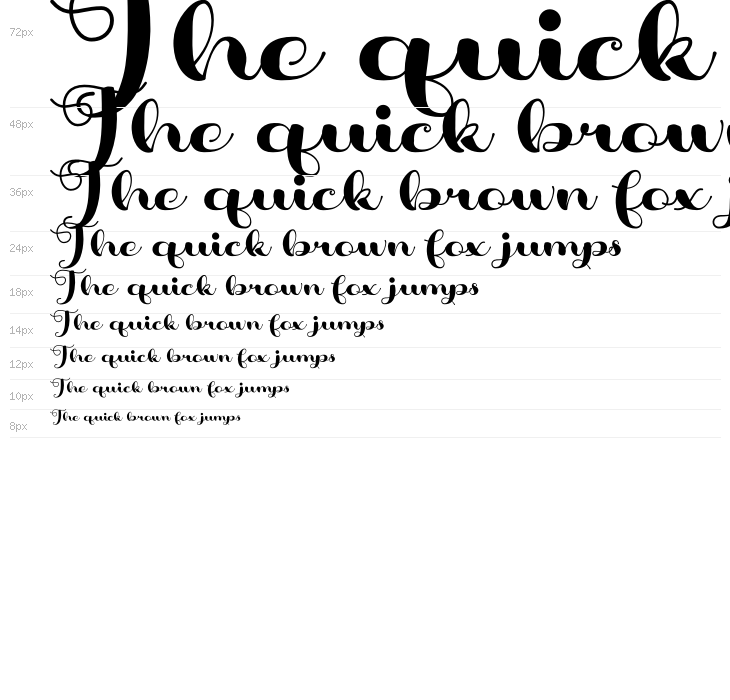 72px The quick
48px The quick brown
36px The quick brown fox j
24px The quick brown fox jumps
18px The quick brown fox jumps
14px The quick brown fox jumps
12px The quick brown fox jumps
10px The quick brown fox jumps
8px The quick brown fox jumps